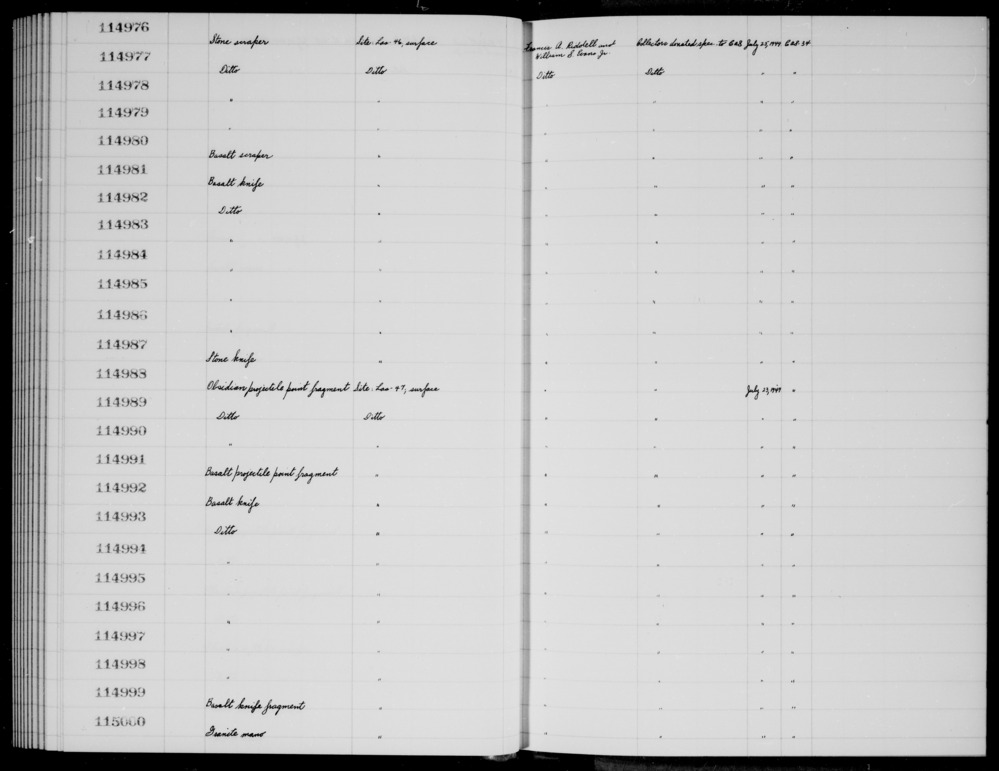 114976 Stone scraper Site: Las-46, surface Francis A. Riddell and William S. Evans Jr. Collectors donated spec. to CAS July 25, 1949 CAS 34
114977 Ditto Ditto Ditto Ditto " "
114978 " " " " " "
114979 " " " " " "
114980 Basalt scraper " " " " "
114981 Basalt knife " " " " "
114982 Ditto " " " " "
114983 " " " " " "
114984 " " " " " "
114985 " " " " " "
114986 " " " " " "
114987 Stone knife " " " " "
114988 Obsidian projectile point fragment Site: Las-47, surface " " July 23, 1949 "
114989 Ditto Ditto " " " "
114990 " " " " " "
114991 Basalt projectile point fragment " " " " "
114992 Basalt knife " " " " "
114993 Ditto " " " " "
114994 " " " " " "
114995 " " " " "
114996 " " " " " "
114997 " " " " " "
114998 " " " " " "
114999 Basalt knife fragment " " " " "
115000 Granite mano " " " " "